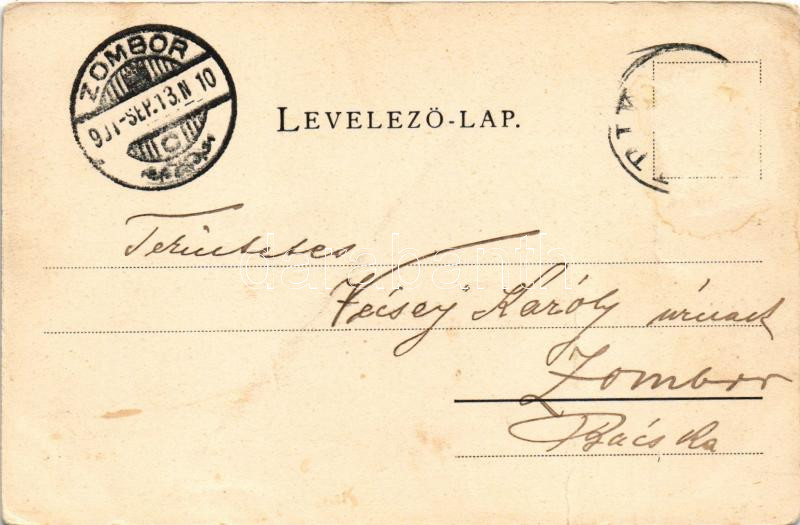 ZOMBOR
901-SEP.13.N 10
C
LEVELEZŐ-LAP.
Tekintetes
Vécsey Károly úrnak
Zombor
Bácska
darabanth